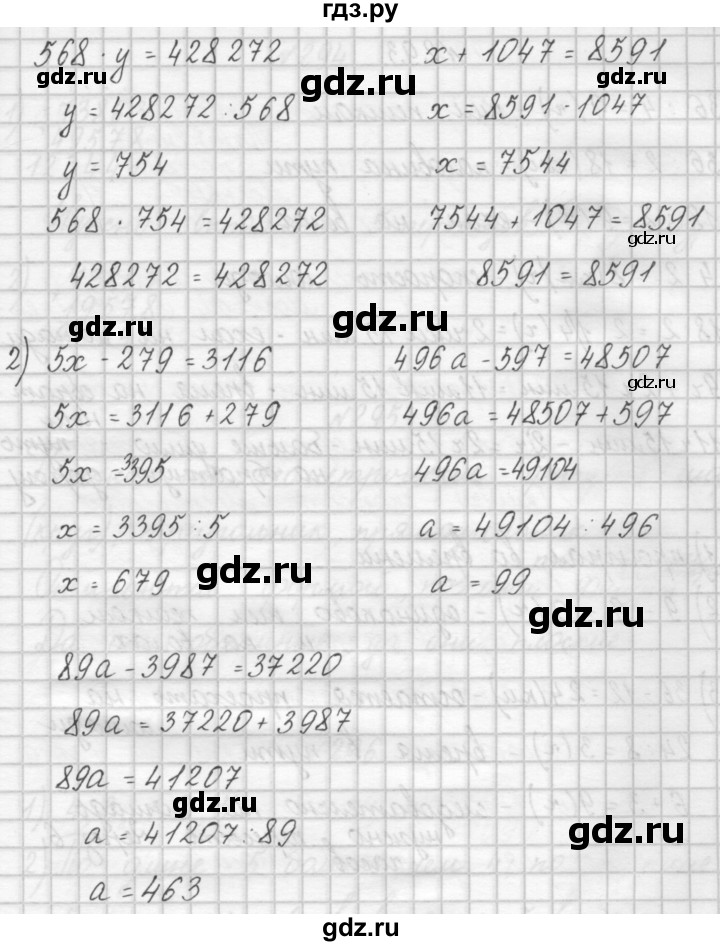 гдз.ру
568 · y = 428272
x + 1047 = 8591
gdz.ru
gdz.ru
gdz.ru
y = 428272 : 568
x = 8591 - 1047
y = 754
x = 7544
568 · 754 = 428272
7544 + 1047 = 8591
gdz.ru
428272 = 428272
8591 = 8591
gdz.ru
gdz.ru
2) 5x - 279 = 3116
496a - 597 = 48507
gdz.ru
5x = 3116 + 279
496a = 48507 + 597
5x = 3395
496a = 49104
x = 3395 : 5
a = 49104 : 496
x = 679
gdz.ru
a = 99
gdz.ru
89a - 3987 = 37220
89a = 37220 + 3987
89a = 41207
gdz.ru
a = 41207 : 89
gdz.ru
a = 463
gdz.ru